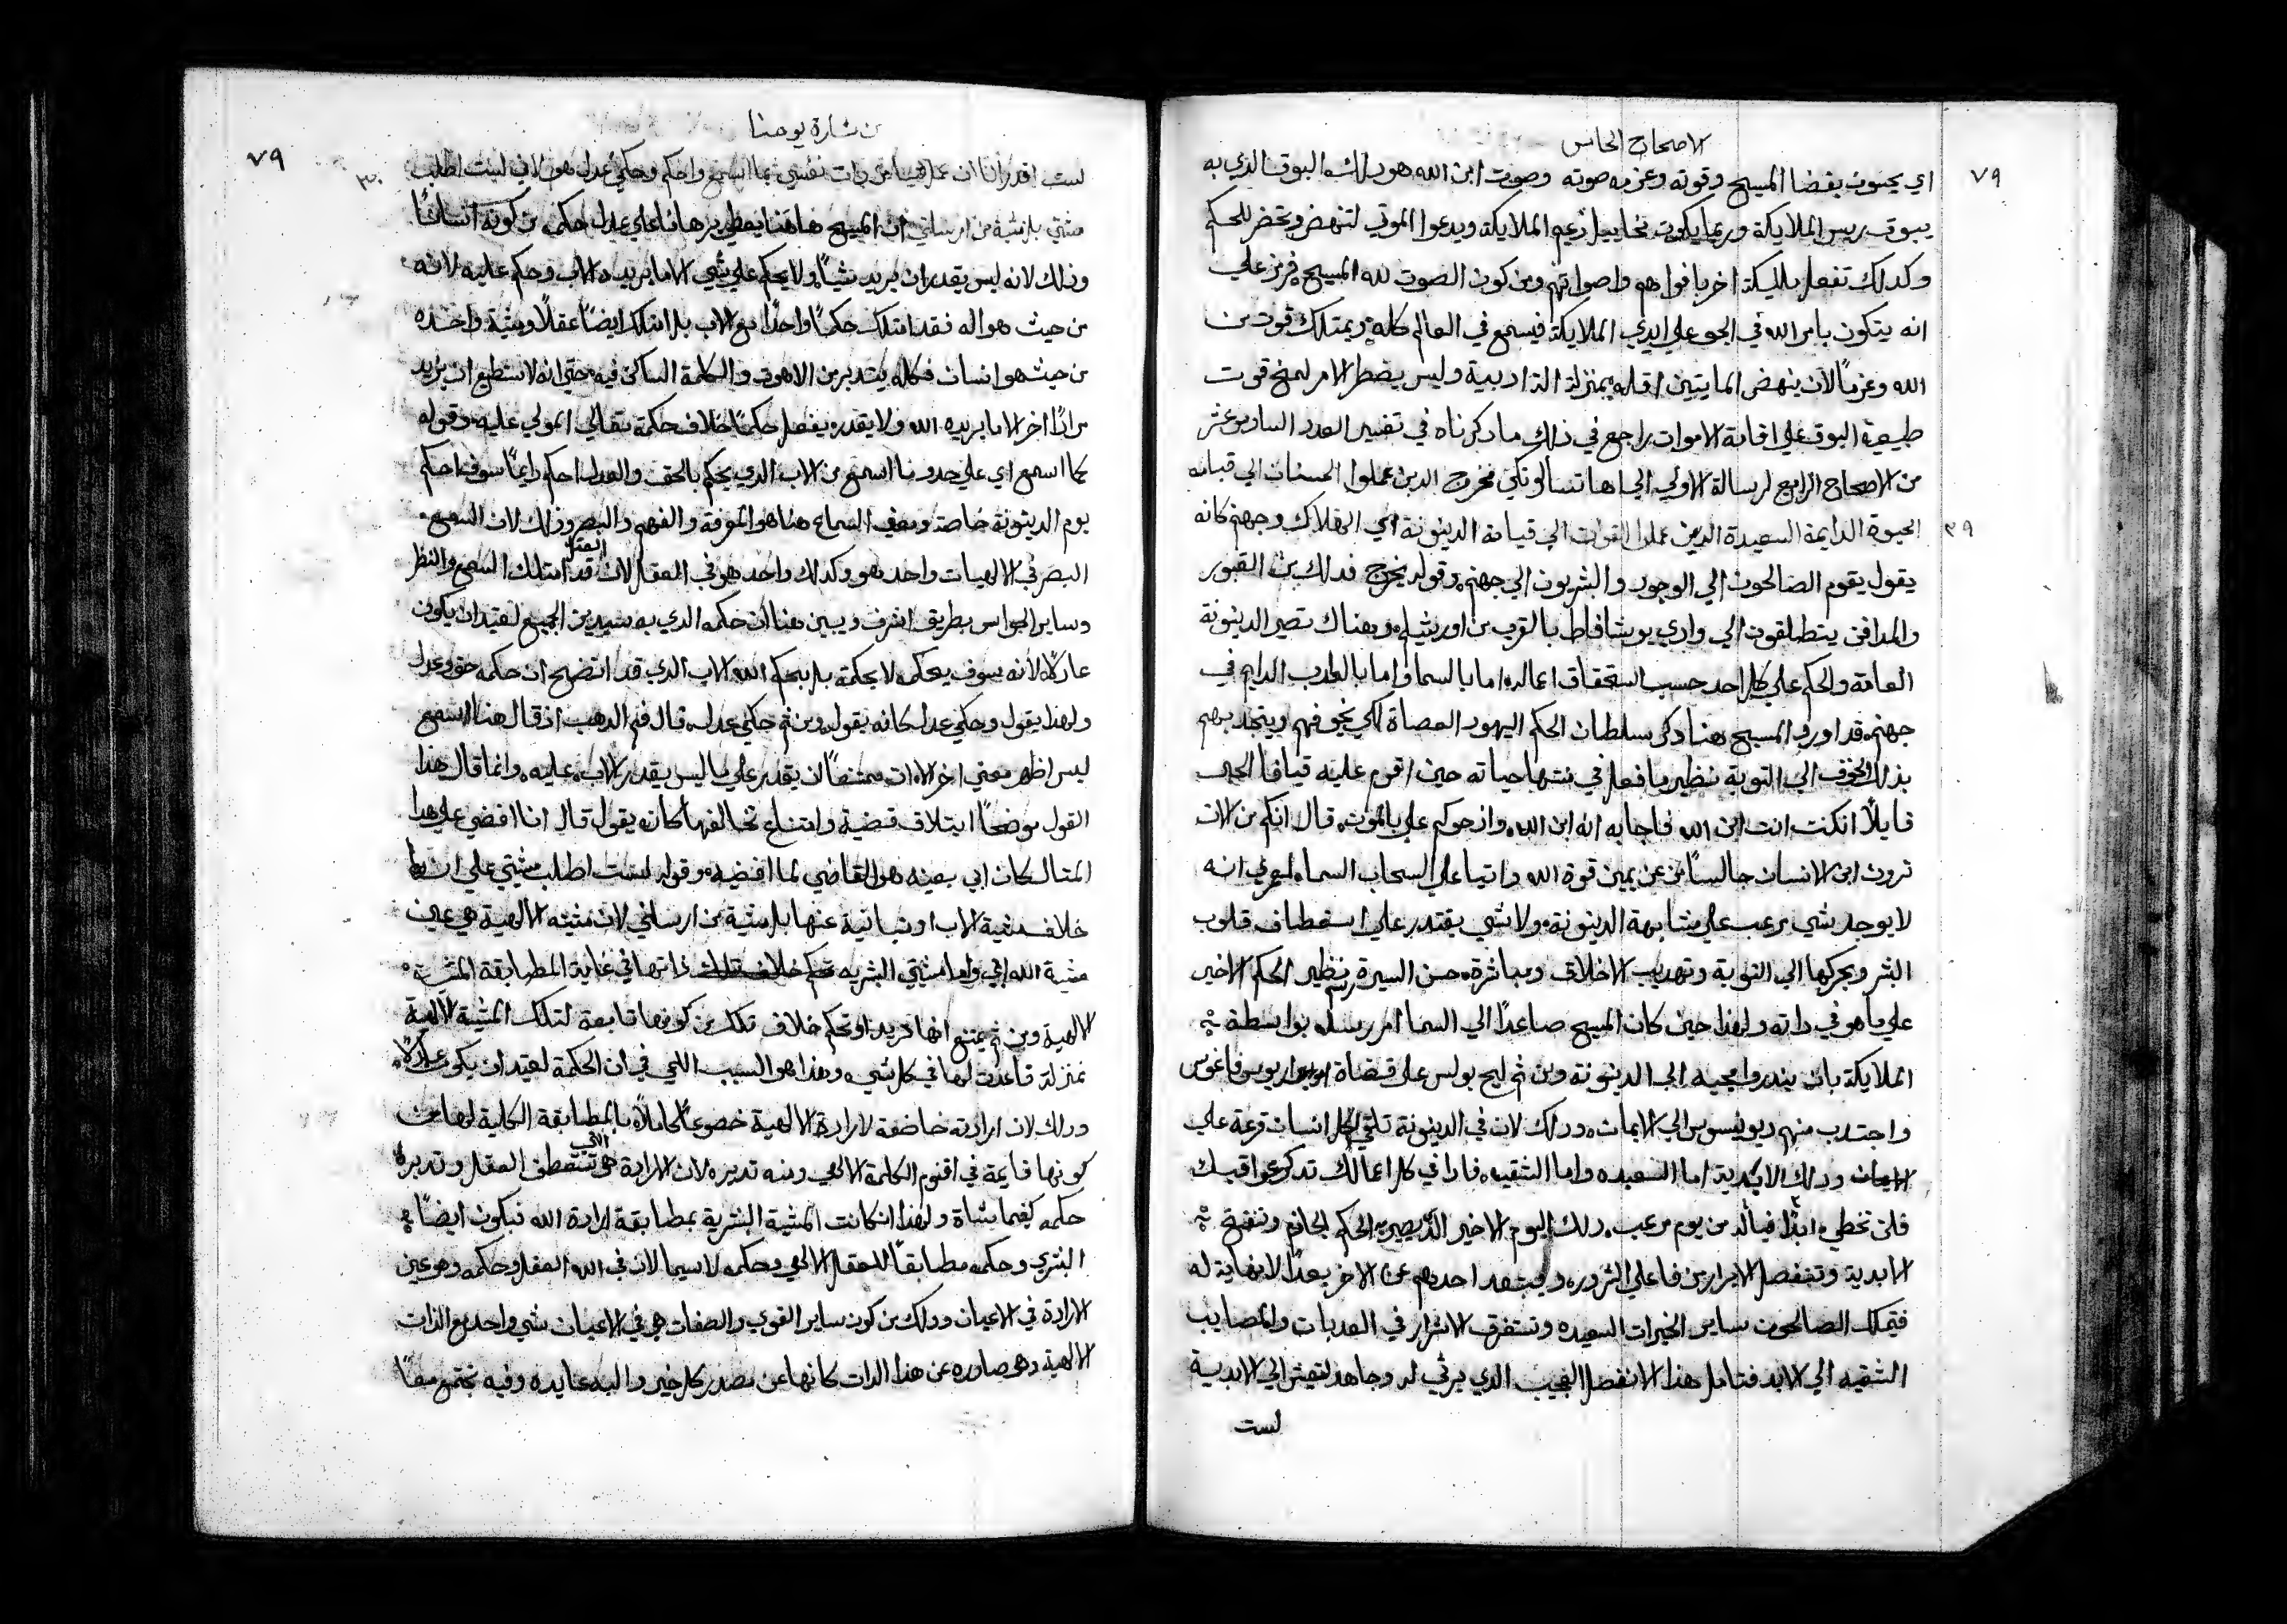 الاصحاح الخامس
٧٩
اي يحسون بقضا المسيح وقوته وعزمه صوته وصوت ابن الله هو دلك البوق الدي به
يبوق ريس الملايكة وربما يكون مخاييل زعيم الملايكة ويدعوا الموتي لتنهض وتحضر للحكم
وكدلك تفعل ملايكة اخر بافواههم واصواتهم ومن كون الصوت لله المسيح
انه يتكون بامر الله في الجو علي ايدي الملايكة فيسمع في العالم كله ويمتلك قوت من
الله وعزماً لان ينهض المايتين اقله بمنزلة الة ادبية وليس يضطر الامر لمنح قوت
طبيعية البوق علي اقامة الاموات راجع في دلك ما دكرناه في تفسير العدد السادس عشر
من الاصحاح الرابع لرسالة الاولي الي اها تسالونكي مخرج الدين عملوا الحسنات الي قيامة
٣٩
الحيوة الدايمة السعيدة الدين عملوا الي قيامة الدينونة اي الهلاك وجهنم كانه
يقول يقوم الصالحون الي الوجود والشريون الي جهنم وقوله يخرج فدلك من القبور
والمدافن ينطلقون الي وادي يوشافاط بالقرب من اورشليم وهناك تصير الدينونة
العامة والحكم علي كل احد حسب استحقاق اعماله اما بالسما واما بالعداب الدايم في
جهنم قد اورد المسيح هنا دكر سلطان الحكم اليهود العصاة لكي يخوفهم ويتخد بهم
بدلك الخوف الي التوبة نظير ما فعل في منتها حياته حين اقوم عليه قيافا الحبر
قايلاً انكنت انت ابن الله فاجابه انه ابن الله وازحوكم علي بالموت قال انكم من الان
ترون ابن الانسان جالساً عن يمين قوة الله واتيا علي السحاب السما لعمري انه
لا يوجد شي يرعب علي مشابهة الدينونة ولا شي يقتدر علي استعطاف قلوب
البشر ويحركها الي التوبة وتهديب الاخلاق ومباشرة حسن السيرة نظير الحكم الاخير
علي ما هو في داته ولهذا حين كان المسيح صاعدًا الي السما امر رسله بواسطة
الملايكة بان ينذروا مجيه الي الدينونة ومن ثم ليح بولس علي قضاة اريوس فاغوس
واجتدب منهم ديونيسوس الي الايمان ودلك لان في الدينونة تلقي لكل انسان قرعة علي
ودلك الابدية اما السعيده واما الشقيه فادا في كل اعمالك تدكر عواقبك
فلن تخطي ابدًا فيا له من يوم مرعب دلك اليوم الاخير الحكم الجازم وتفتح
الابدية وتنفصل الابرار من فاعلي الشرور احدهم عن الاخر بعدًا لا نهاية له
فيتملك الصالحون ساير الخيرات السعيده وتستغرق الاشرار في العدبات والمصايب
الشقيه الي الابد فتامل هذا الانفصل العجيب الدي يرثي له وجاهد لتعيش الي الابدية
لست
من بشارة يوحنا
٧٩
٣٠
لست اقدر انا ان عمل شيا من دات نفسي بما اسمع واحكم وحكمي عدل هو لاني لست اطلب
مشيتي بل مشية من ارسلني ان المسيح هاهنا يعطي برهانا علي عدل حكمه من كونه انساناً
ودلك لانه ليس يقدر ان يريد شياً ولا يحكم علي شي الا ما يريده الاب وحكم عليه لانه
من حيث هو اله فقد امتلك حكماً واحدًا مع الاب بل امتلك ايضاً عقلاً ومشية واحده
من حيث هو انسان فكله يتدبر من الاهوت والكلمة الساكن فيه حتي انه لا يستطيع ان يريد
مرادًا اخر الا ما يريده الله ولا يقدر يفصل حكماً خلاف حكمة تعالي المولي عليه وقوله
كما اسمع اي علي حدو ما اسمع من الاب الدي يحكم بالحق والعدل احكم دايماً سوف احكم
يوم الدينونة خاصة ومعني السماع هنا هو المعرفة والفهم والبصر ودلك لان السمع
البصر في الالهيات واحد هو وكدلك واحد هو في العقل لان العقل قد امتلك السمع والنظر
وساير الحواس بطريق اشرف ويبين هنا ان حكمه الدي به سيدين الجميع لعتيد ان يكون
عادلاً لانه سوف يحكم لا بحكمة بل بحكم الله الاب الدي قد اتضح ان حكمه حق وعدل
ولهذا يقول وحكمي عدل كانه يقول ومن ثم حكمي عدل قال فم الدهب اذ قال هنا اسمع
ليس اظهر معني اخر الا ان ممتنعاً ان يقدر علي ما ليس يقدر الاب عليه وانما قال هذا
القول موضحاً ايتلاف قضية وامتناع تخالفها كانه يقول قال انا اقضي علي هدا
المتال كان ابي بعينه هو القاضي لما اقضيه وقوله لست اطلب مشيتي علي ان
خلاف مشية الاب او متباينة عنها بل مشية من ارسلني لان مشيته الالهية هي عين
مشية الله ابي واما مشيتي البشريه ذاتها في غاية المطابقة المشية
الالهية ومن ثم يمتنع انها تريد او تحكم خلاف تلك من كونها تابعة لتلك المشية الالهية
بمنزلة قاعدة لها في كل شي وهذا هو السبب اللمي في ان الحكمة لعتيد ان يكون عادلاً
ودلك لان ارادته خاضعة لارادة الالهية خضوعاً كاملاً بالمطابقة الكلية لها من
كونها قايمة في اقنوم الكلمة الالهي ومنه تديره لان الارادة هي تستعطف العقل وتدبره
حكمه كيفما يشاة ولهذا ان كانت المشية البشرية بمطابقة ارادة الله فيكون ايضاً
البشري وحكمه مطابقاً للعقل الالهي وحكمه لاسيما لان في الله العقل وحكمه وهو عين
الارادة في الاعيان ودلك من كون ساير القوي والصفات هي في الاعيان شي واحد مع الذات
الالهية وهي صادره عن هذا الدات كانها عن مصدر كل خير واليه عايده وفيه تجتمع معاً